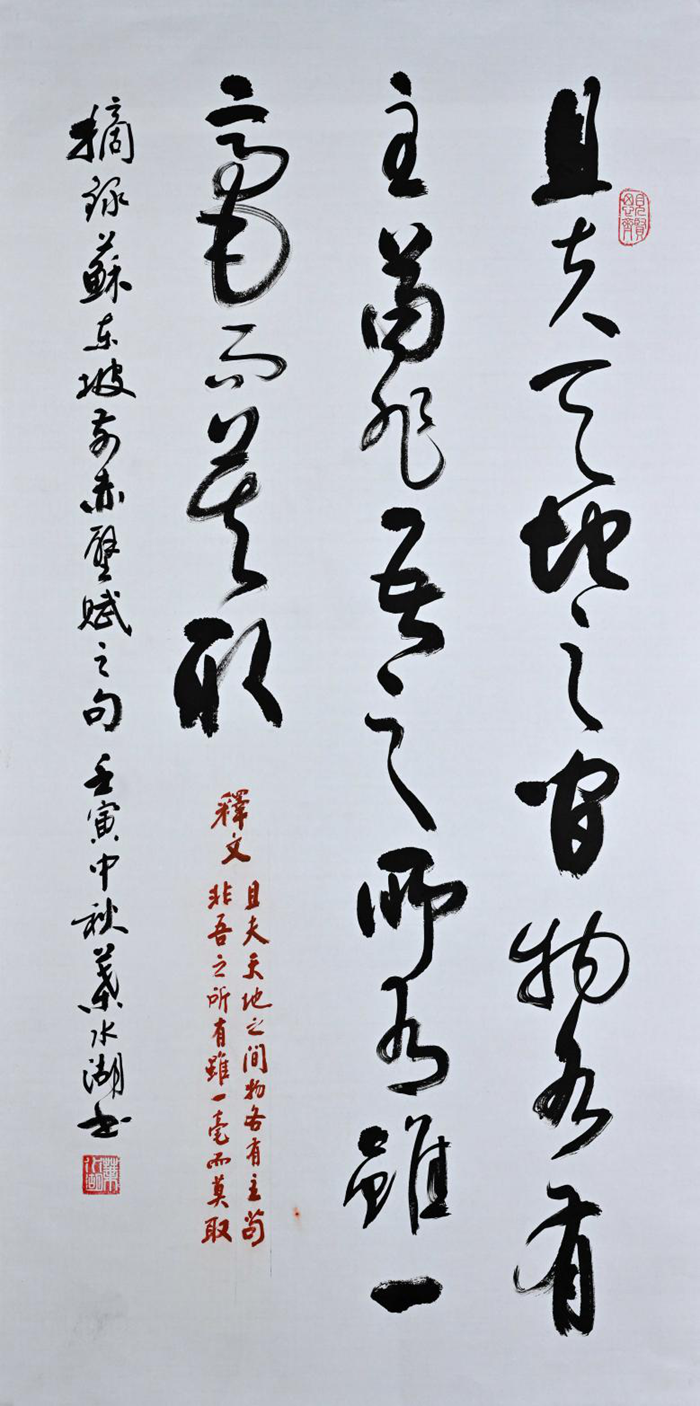 且夫天地之间物各有
主苟非吾之所有雖一
毫而莫取
釋文
且夫天地之间物各有主苟
非吾之所有雖一毫而莫取
摘録蘇東坡前赤壁賦之句 壬寅中秋葉水湖書
見賢思齊
葉水湖